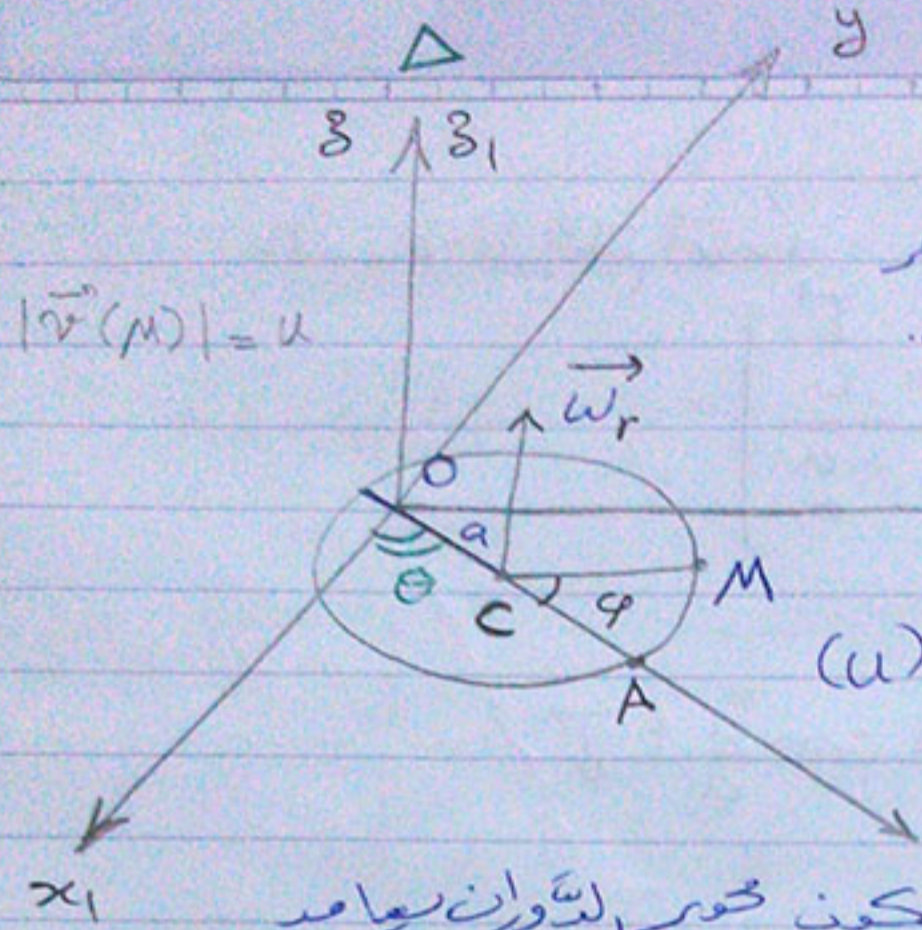 Δ
y
z z₁
|v⃗(M)| = u
ω⃗ᵣ
O
a
θ
C
φ
M
A
(u)
x₁
محور الدَّوران يعامد